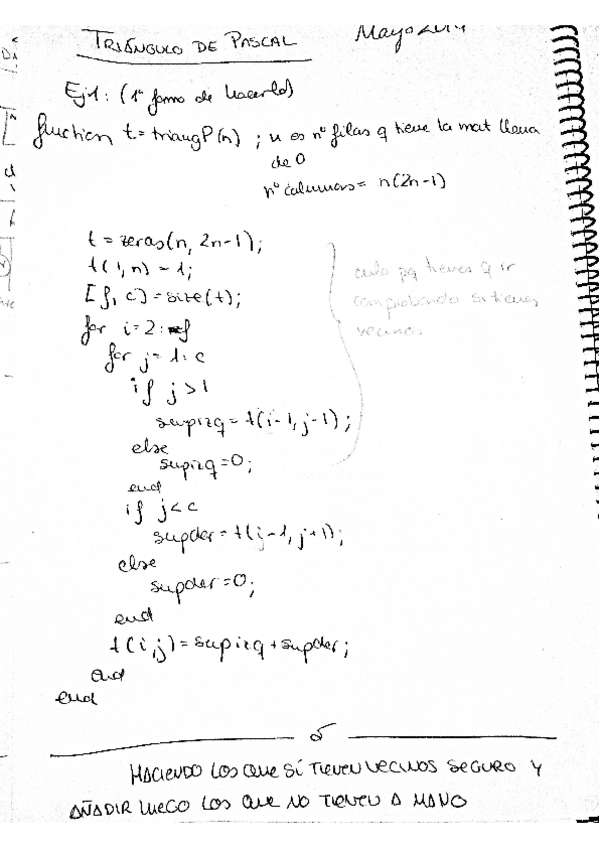 TRIÁNGULO DE PASCAL
Mayo 2014
Ej1: (1ª forma de hacerlo)
function t = triangP(n) ; n es nº filas q tiene la mat llena
de 0
nº columnas = n(2n-1)
t = zeros(n, 2n-1);
t(1, n) = 1;
[f, c] = size(t);
for i=2:f
for j=1:c
if j>1
supizq = t(i-1, j-1);
else
supizq=0;
end
if j<c
supder = t(i-1, j+1);
else
supder=0;
end
t(i,j)=supizq+supder;
end
end
pq tienes q ir
comprobando si tienes
vecinos
HACIENDO LOS QUE SÍ TIENEN VECINOS SEGURO Y
AÑADIR LUEGO LOS QUE NO TIENEN A MANO